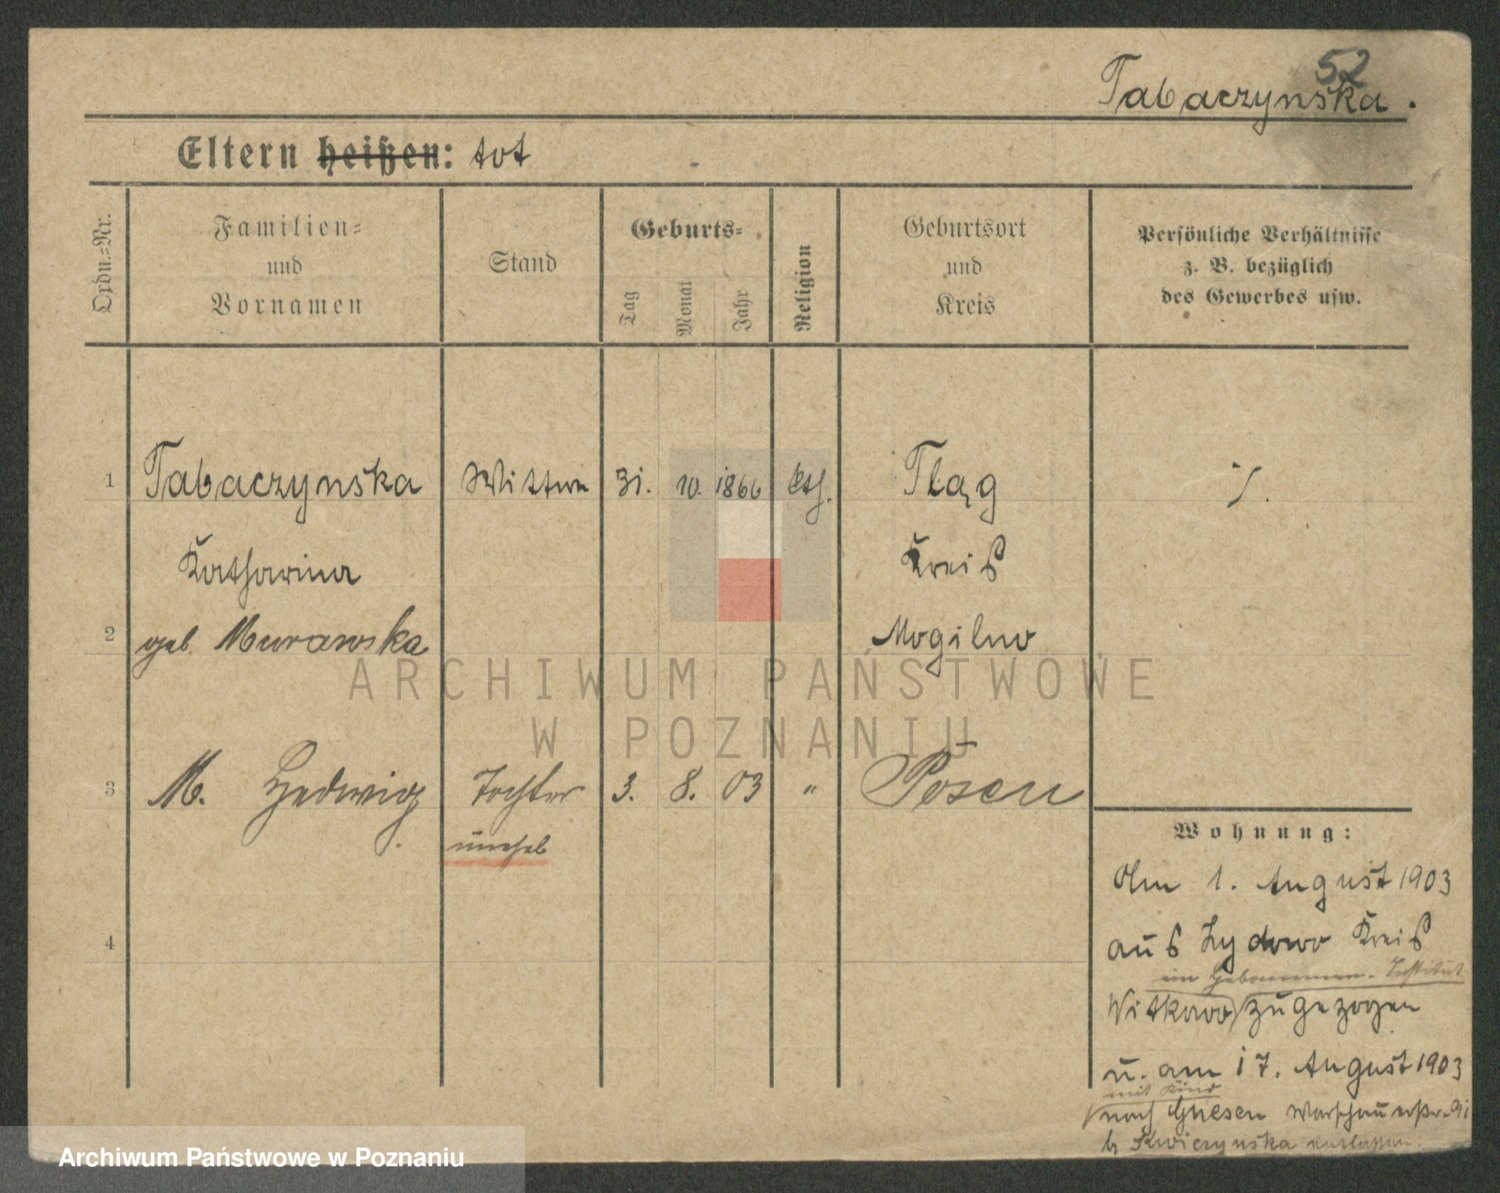 52
Tabaczynska.
Eltern heißen: tot
Ordn.-Nr.
Familien-
und
Vornamen
Stand
Geburts-
Tag
Monat
Jahr
Religion
Geburtsort
und
Kreis
Persönliche Verhältnisse
z. B. bezüglich
des Gewerbes usw.
1 Tabaczynska Wittwe 31. 10. 1866 kth. Tląg
Katharina Kreis
2 geb. Murawska Mogilno
3 M. Hedwig Tochter 3. 8. 03 " Posen
unehel
4
Wohnung:
Am 1. August 1903
aus Lydowo Kreis
im Hebammen-Institut
Witkowo zugezogen
u. am 17. August 1903
mit Kind
nach Gnesen
b Kwiczynska
ARCHIWUM PAŃSTWOWE
W POZNANIU
Archiwum Państwowe w Poznaniu